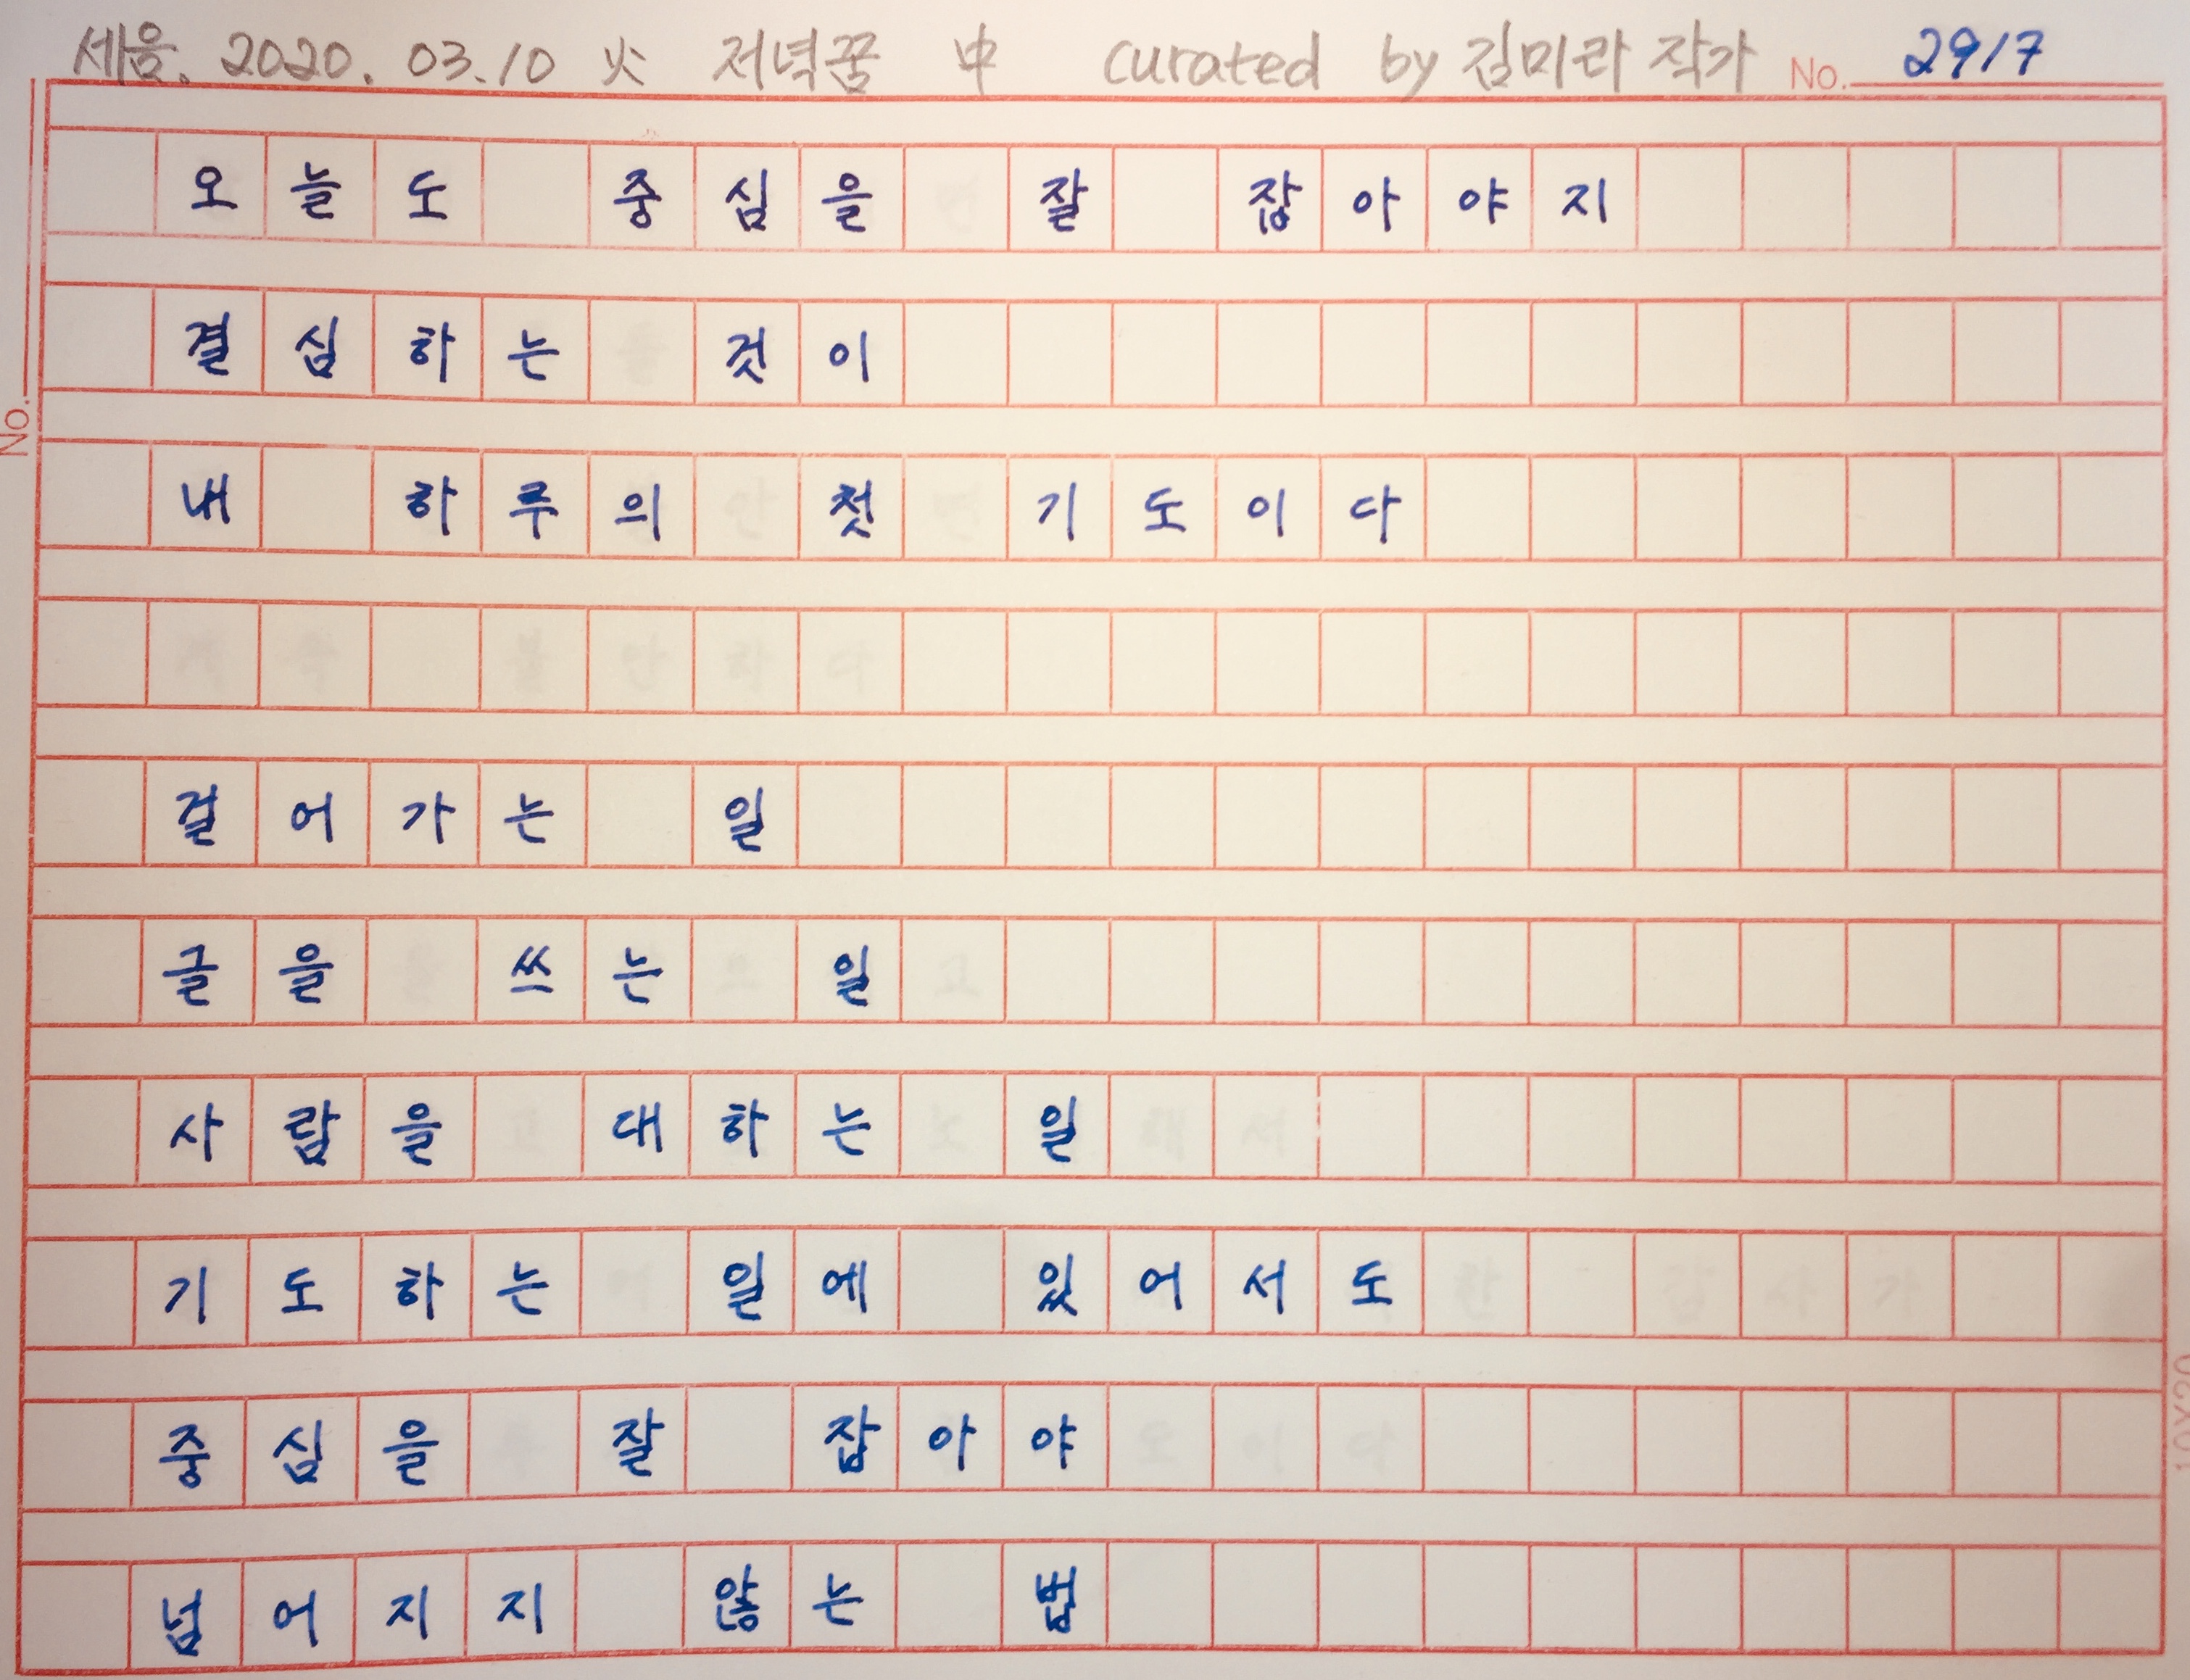 세음. 2020. 03.10 火 저녁꿈 中 curated by 김미라 작가 No. 2917
오늘도 중심을 잘 잡아야지
결심하는 것이
No.
내 하루의 첫 기도이다
걸어가는 일
글을 쓰는 일
사람을 대하는 일
기도하는 일에 있어서도
중심을 잘 잡아야
넘어지지 않는 법
10X20